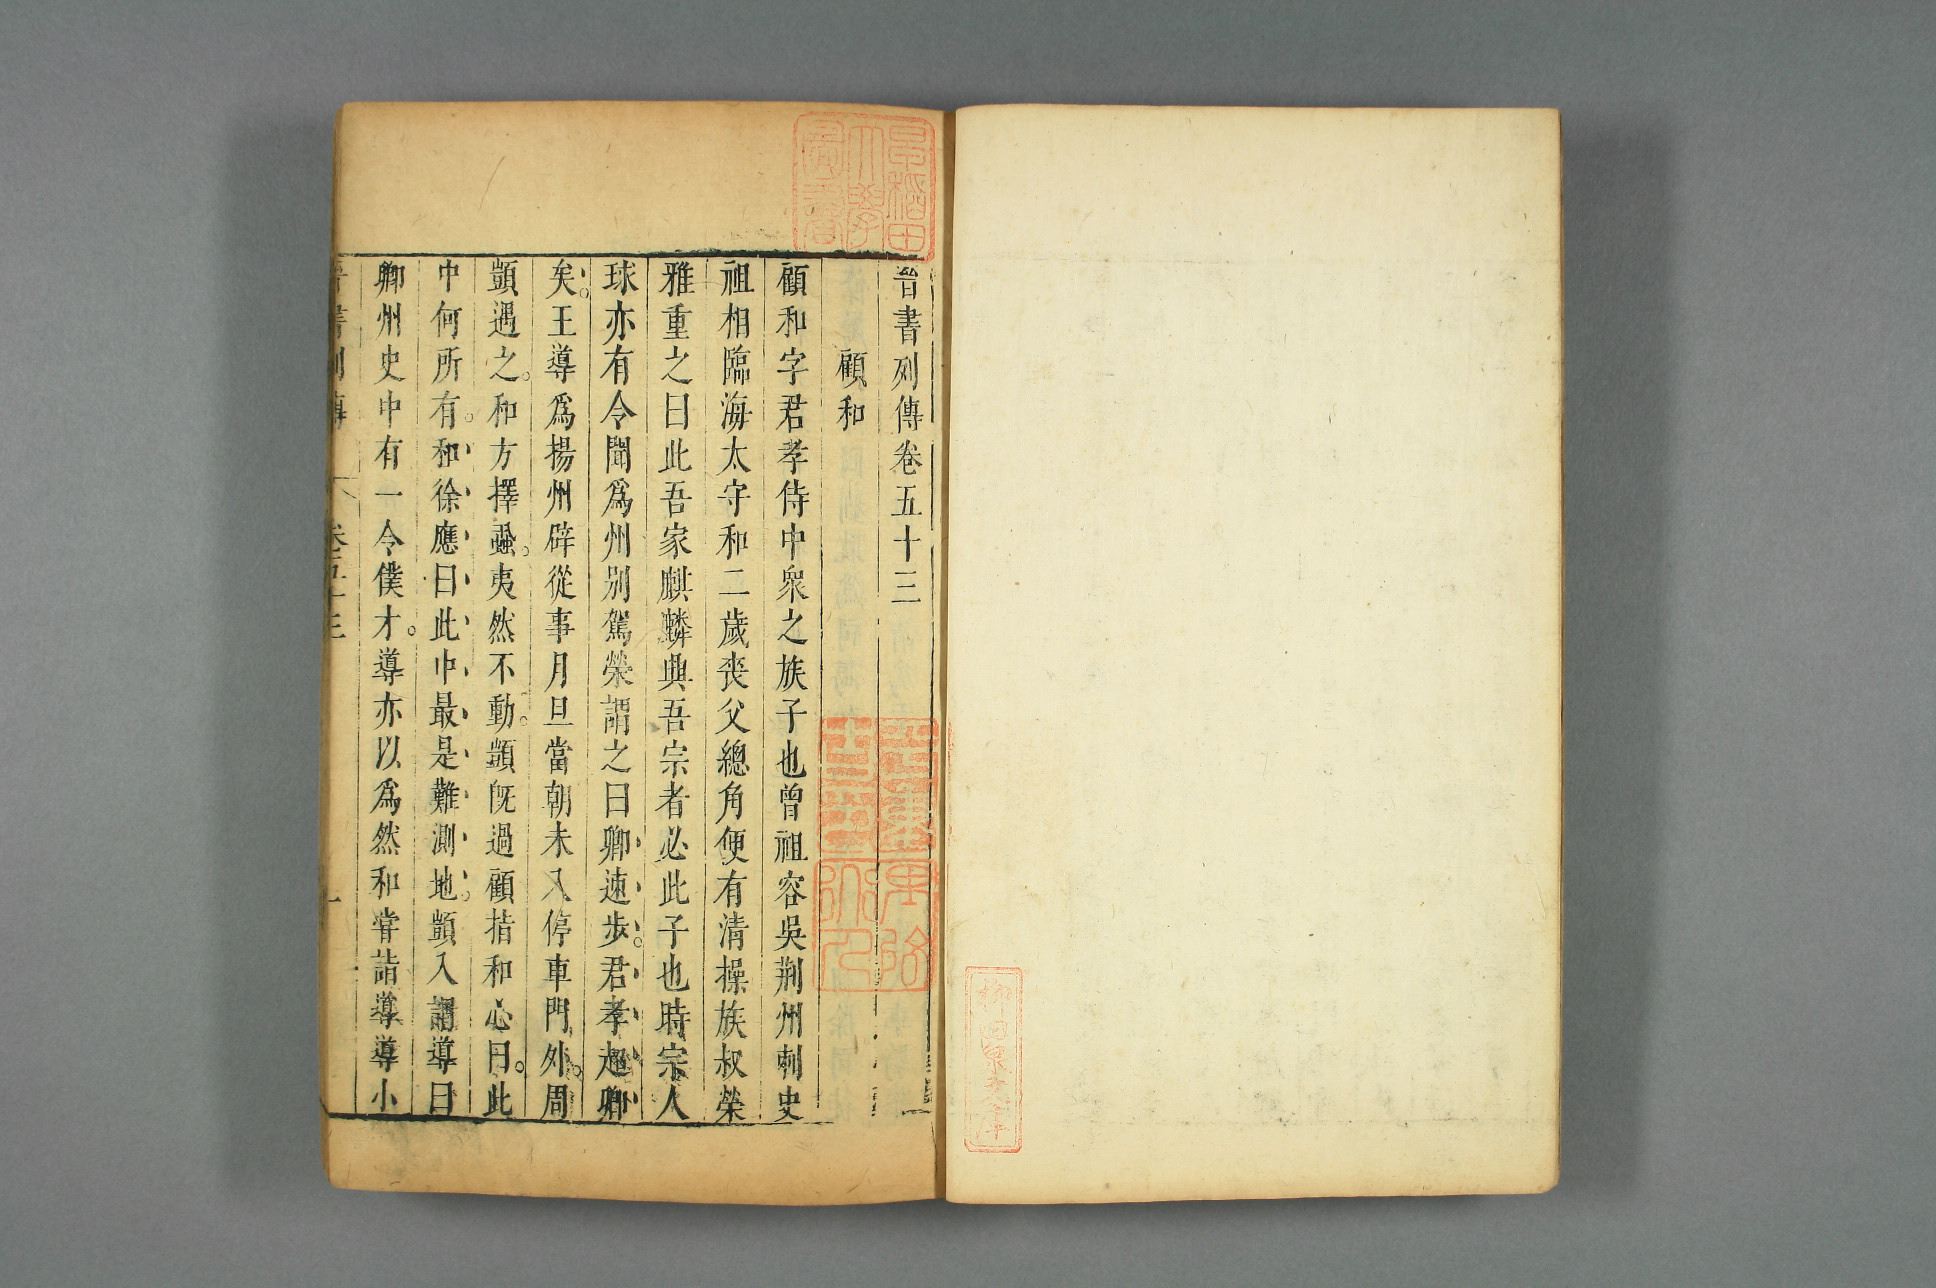 晉書列傳卷五十三
顧和
顧和字君孝侍中衆之族子也曾祖容吳荆州刺史
祖相臨海太守和二歲喪父總角便有清操族叔榮
雅重之曰此吾家麒麟興吾宗者必此子也時宗人
球亦有令聞爲州别駕榮謂之曰卿速步。君孝超卿
矣。王導爲揚州辟從事月旦當朝未入停車門外。周
顗遇之。和方擇蝨。夷然不動。顗既過顧指和心曰。此
中何所有。和徐應曰此中最是難測地。顗入謂導曰
卿州史中有一令僕才。導亦以爲然和甞詣導導小
晉書列傳 卷五十三 一
早稻田大學圖書
柳田泉文庫